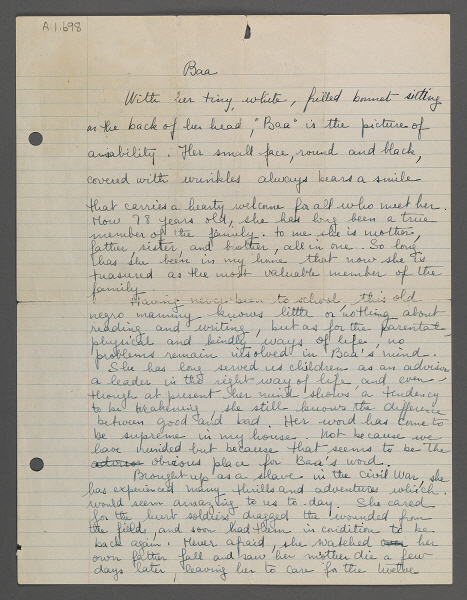 A.1.698
Baa
With her tiny, white, frilled bonnet sitting
on the back of her head, "Baa" is the picture of
amiability. Her small face, round and black,
covered with wrinkles always bears a smile
that carries a hearty welcome for all who meet her.
Now 78 years old, she has long been a true
member of the family. to me she is mother,
father, sister, and brother, all in one. So long
has she been in my home that now she is
treasured as the most valuable member of the
family.
Having never been to school, this old
negro mammy knows little or nothing about
reading and writing, but as for the parental
physical and kindly ways of life, no
problems remain unsolved in Baa's mind.
She has long served us children as an advisor
a leader in the right way of life and even
though at present her mind shows a tendency
to be weakening, she still knows the difference
between good and bad. Her word has come to
be supreme in my house. Not because we
have minded but because that seems to be the
obvious place for Baa's word.
Brought up as a slave in the Civil War, she
has experienced many thrills and adventures which
would seem amazing to us to-day. She cared
for the hurt soldiers, dragged the wounded from
the field, and soon had them in condition to be
back again. Never afraid, she watched her
own father fall and saw her mother die a few
days later, leaving her to care for the twelve